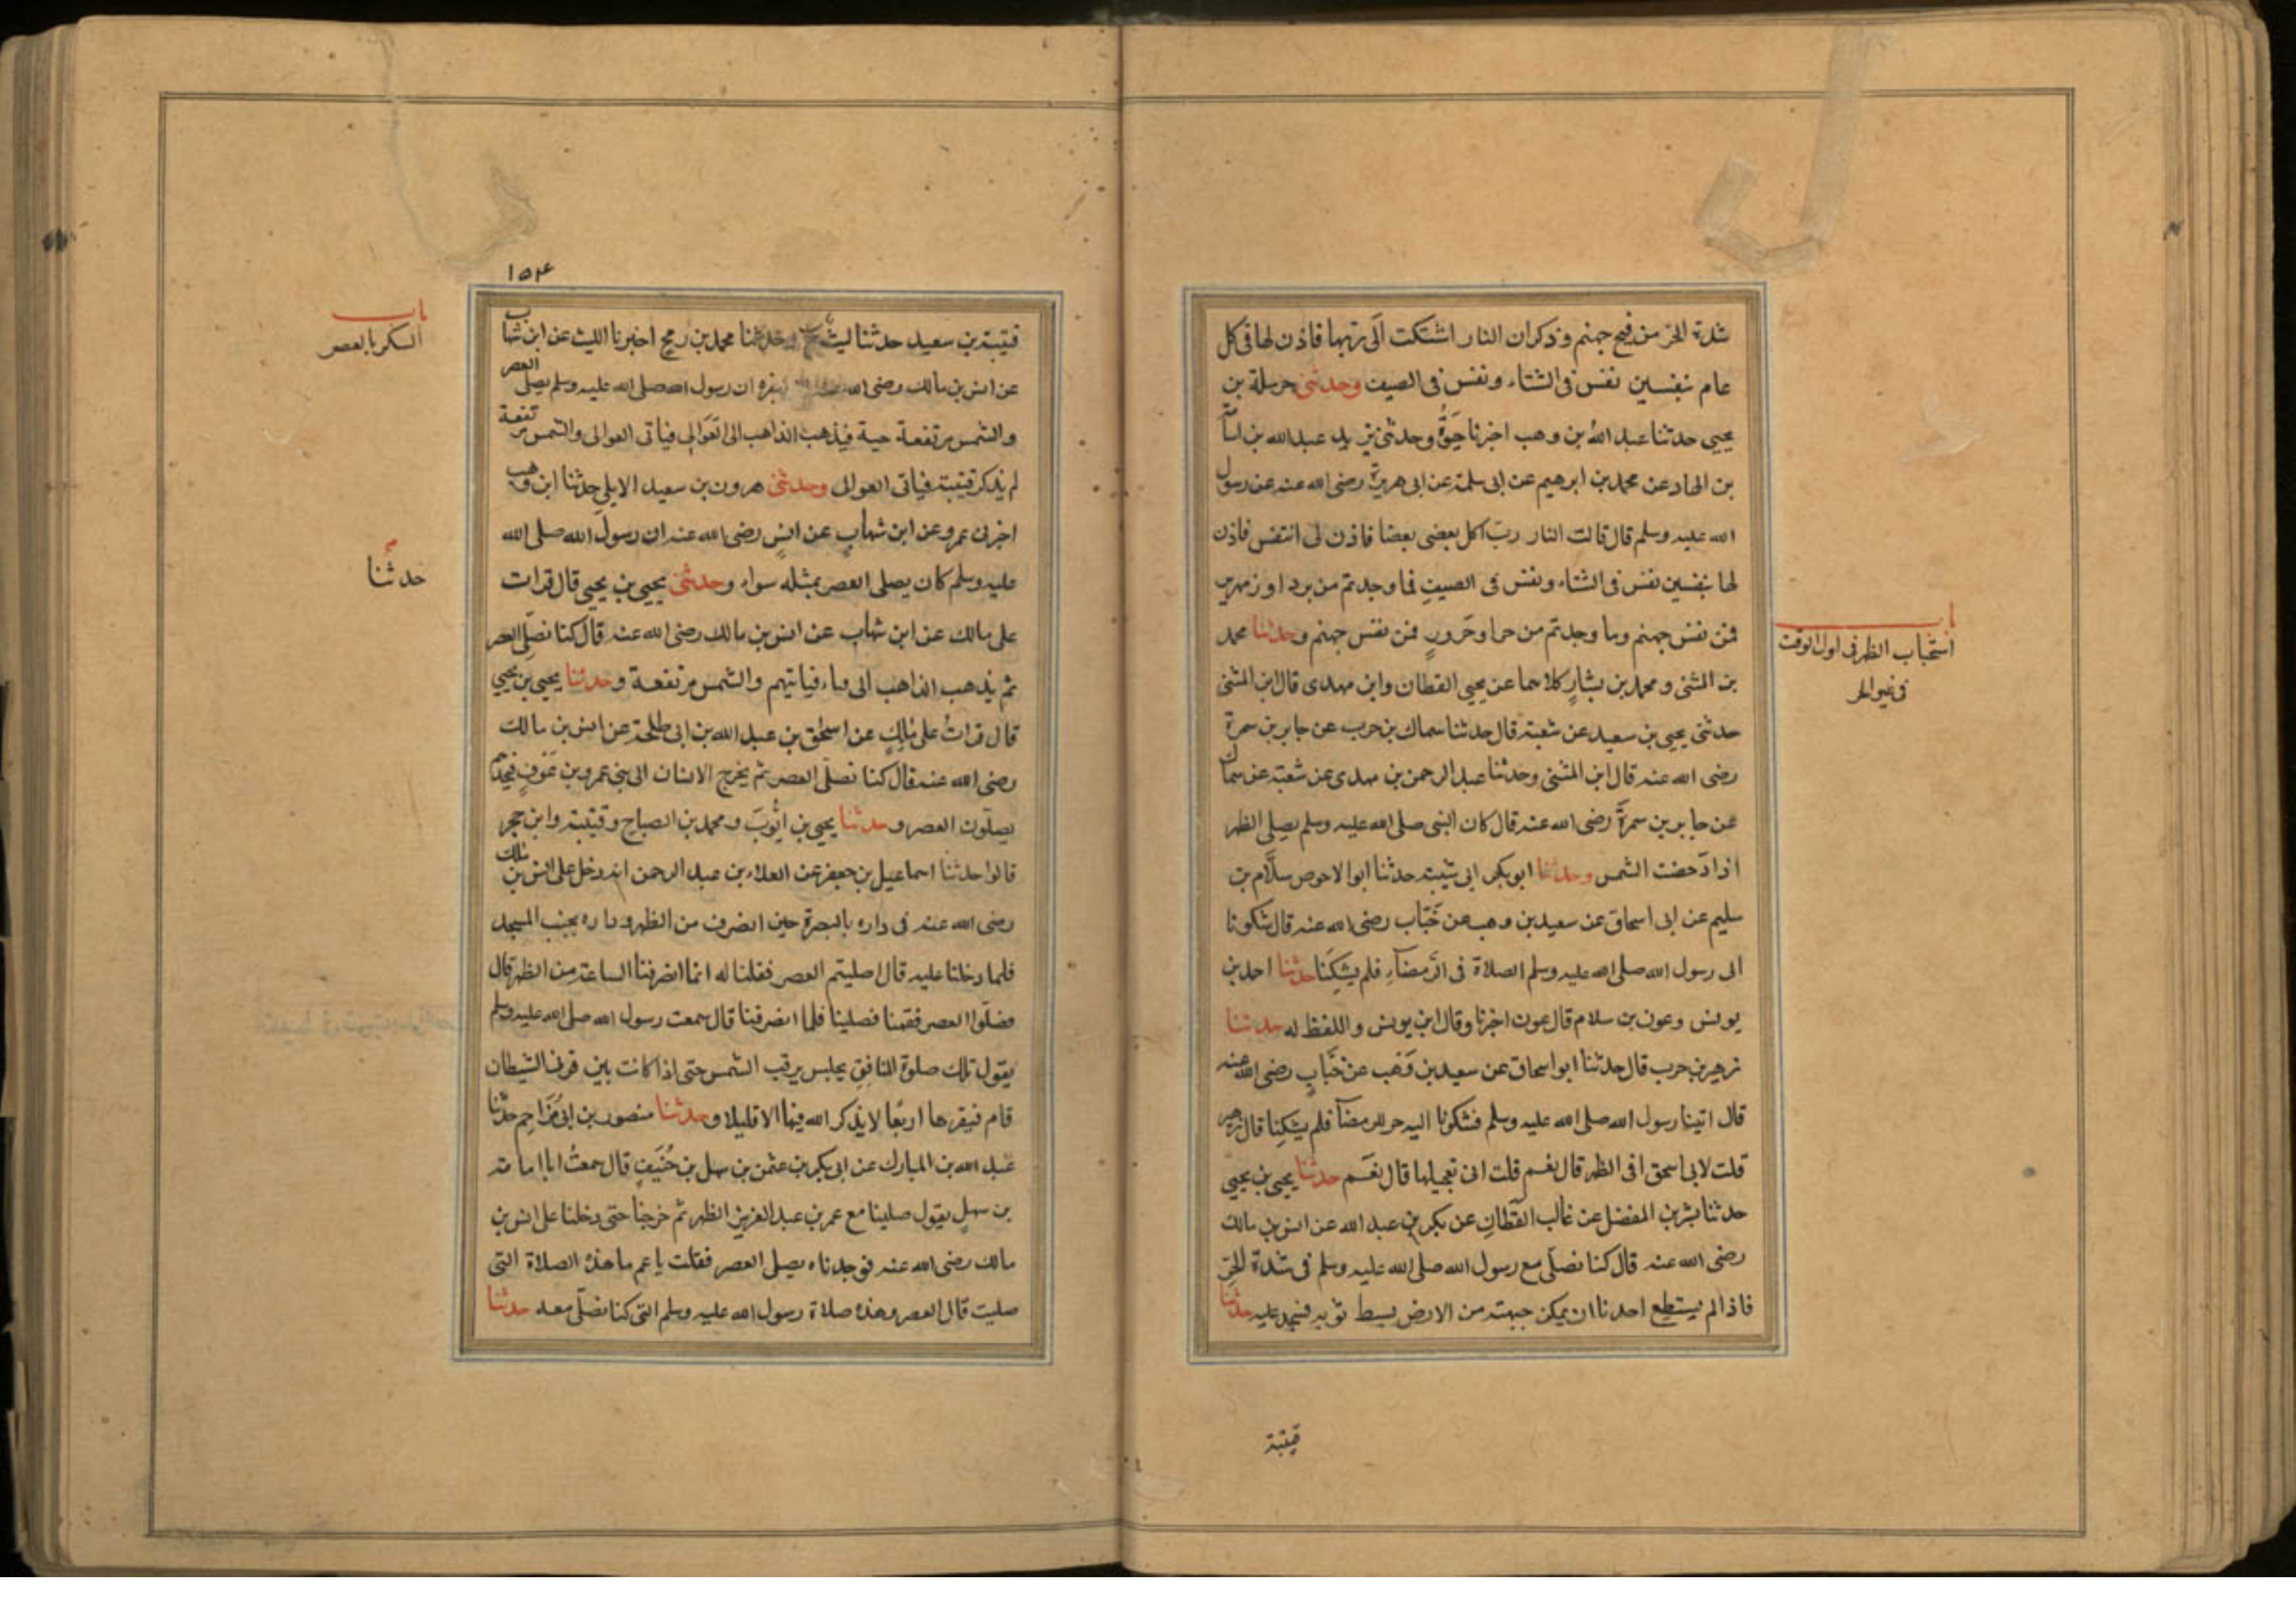 شدة الحر من فيح جهنم وذكر ان النار اشتكت الى ربها فاذن لها فى كل
عام بنفسين نفس فى الشتاء ونفس فى الصيف وحدثنى حرملة بن
يحيى حدثنا عبد الله بن وهب اخبرنا حيوة وحدثنى يزيد عبد الله بن اسامة
بن الهاد عن محمد بن ابرهيم عن ابى سلمة عن ابى هريرة رضى الله عنه عن رسول
الله عليه وسلم قال قالت النار رب اكل بعضى بعضا فاذن لى اتنفس فاذن
لها بنفسين نفس فى الشتاء ونفس فى الصيف فما وجدتم من برد او زمهرير
فمن نفس جهنم وما وجدتم من حر او حرور فمن نفس جهنم وحدثنا محمد
بن المثنى ومحمد بن بشار كلاهما عن يحيى القطان وابن مهدى قال ابن المثنى
حدثنى يحيى بن سعيد عن شعبة قال حدثنا سماك بن حرب عن جابر بن سمرة
رضى الله عنه قال ابن المثنى وحدثنا عبد الرحمن بن مهدى عن شعبة عن سماك
عن جابر بن سمرة رضى الله عنه قال كان النبى صلى الله عليه وسلم يصلى الظهر
اذا دحضت الشمس وحدثنا ابو بكر ابى شيبة حدثنا ابو الاحوص سلام بن
سليم عن ابى اسحاق عن سعيد بن وهب عن خباب رضى الله عنه قال شكونا
الى رسول الله صلى الله عليه وسلم الصلاة فى الرمضاء فلم يشكنا حدثنا احمد بن
يونس وعون بن سلام قال عون اخبرنا وقال ابن يونس واللفظ له حدثنا
زهير بن حرب قال حدثنا ابو اسحاق عن سعيد بن وهب عن خباب رضى الله عنه
قال اتينا رسول الله صلى الله عليه وسلم فشكونا اليه حر الرمضآ فلم يشكنا قال زهير
قلت لابى اسحق افى الظهر قال نعم قلت افى تعجيلها قال نعم حدثنا يحيى بن يحيى
حدثنا بشر بن المفضل عن غالب القطان عن بكر بن عبد الله عن انس بن مالك
رضى الله عنه قال كنا نصلى مع رسول الله صلى الله عليه وسلم فى شدة الحر
فاذا لم يستطع احدنا ان يمكن جبهته من الارض بسط ثوبه فسجد عليه حدثنا
باب
استحباب الظهر فى اول الوقت
فى غير الحر
قتيبة
١٥٤
قتيبة بن سعيد حدثنا ليث ح وحدثنا محمد بن رمح اخبرنا الليث عن ابن شهاب
عن انس بن مالك رضى الله عنه انه اخبره ان رسول الله صلى الله عليه وسلم يصلى العصر
والشمس مرتفعة حية فيذهب الذاهب الى العوالى فياتى العوالى والشمس مرتفعة
لم يذكر قتيبة فياتى العوالى وحدثنى هرون بن سعيد الايلى حدثنا ابن وهب
اخبرنى عمرو عن ابن شهاب عن انس رضى الله عنه ان رسول الله صلى الله
عليه وسلم كان يصلى العصر بمثله سواء وحدثنى يحيى بن يحيى قال قرات
على مالك عن ابن شهاب عن انس بن مالك رضى الله عنه قال كنا نصلى العصر
ثم يذهب الذاهب الى قباء فياتيهم والشمس مرتفعة وحدثنا يحيى بن يحيى
قال قرات على مالك عن اسحق بن عبد الله بن ابى طلحة عن انس بن مالك
رضى الله عنه قال كنا نصلى العصر ثم يخرج الانسان الى بنى عمرو بن عوف فيجدهم
يصلون العصر وحدثنا يحيى بن ايوب ومحمد بن الصباح وقتيبة وابن حجر
قالوا حدثنا اسماعيل بن جعفر عن العلاء بن عبد الرحمن انه دخل على انس بن مالك
رضى الله عنه فى داره بالبصرة حين انصرف من الظهر وداره بجنب المسجد
فلما دخلنا عليه قال اصليتم العصر فقلنا له انما انصرفنا الساعة من الظهر قال
فصلوا العصر فقمنا فصلينا فلما انصرفنا قال سمعت رسول الله صلى الله عليه وسلم
يقول تلك صلوة المنافق يجلس يرقب الشمس حتى اذا كانت بين قرنى الشيطان
قام فنقرها اربعا لا يذكر الله فيها الا قليلا وحدثنا منصور بن ابى مزاحم حدثنا
عبد الله بن المبارك عن ابى بكر بن عثمن بن سهل بن حنيف قال سمعت ابا امامة
بن سهل يقول صلينا مع عمر بن عبد العزيز الظهر ثم خرجنا حتى دخلنا على انس بن
مالك رضى الله عنه فوجدناه يصلى العصر فقلت يا عم ما هذه الصلاة التى
صليت قال العصر وهذه صلاة رسول الله عليه وسلم التى كنا نصلى معه حدثنا
باب
بالعصر
حدثنا